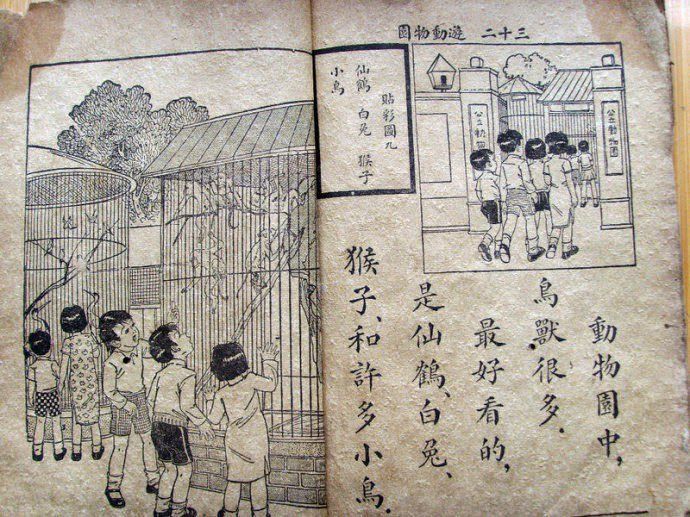 三十二 遊動物園
公立動物園
公立動物園
貼彩圖九
仙鶴 白兔 猴子
小鳥
動物園中，
鳥獸很多．
最好看的，
是仙鶴、白兔、
猴子、和許多小鳥．